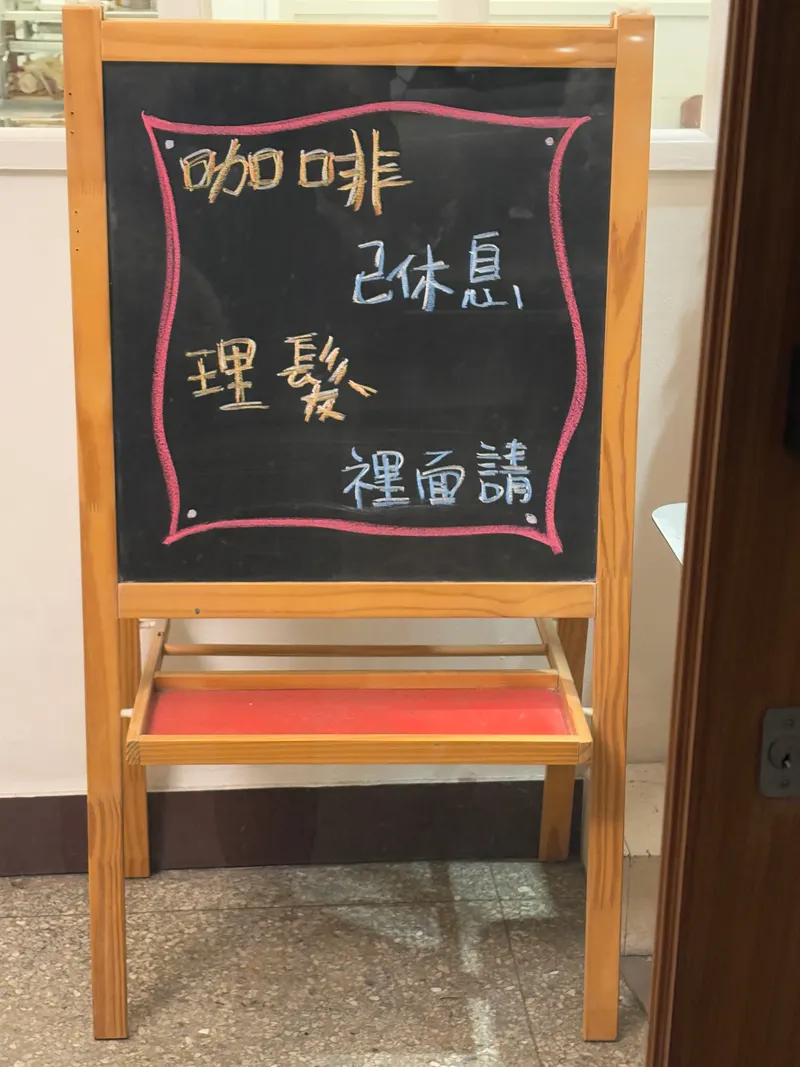 咖啡
已休息
理髮
裡面請